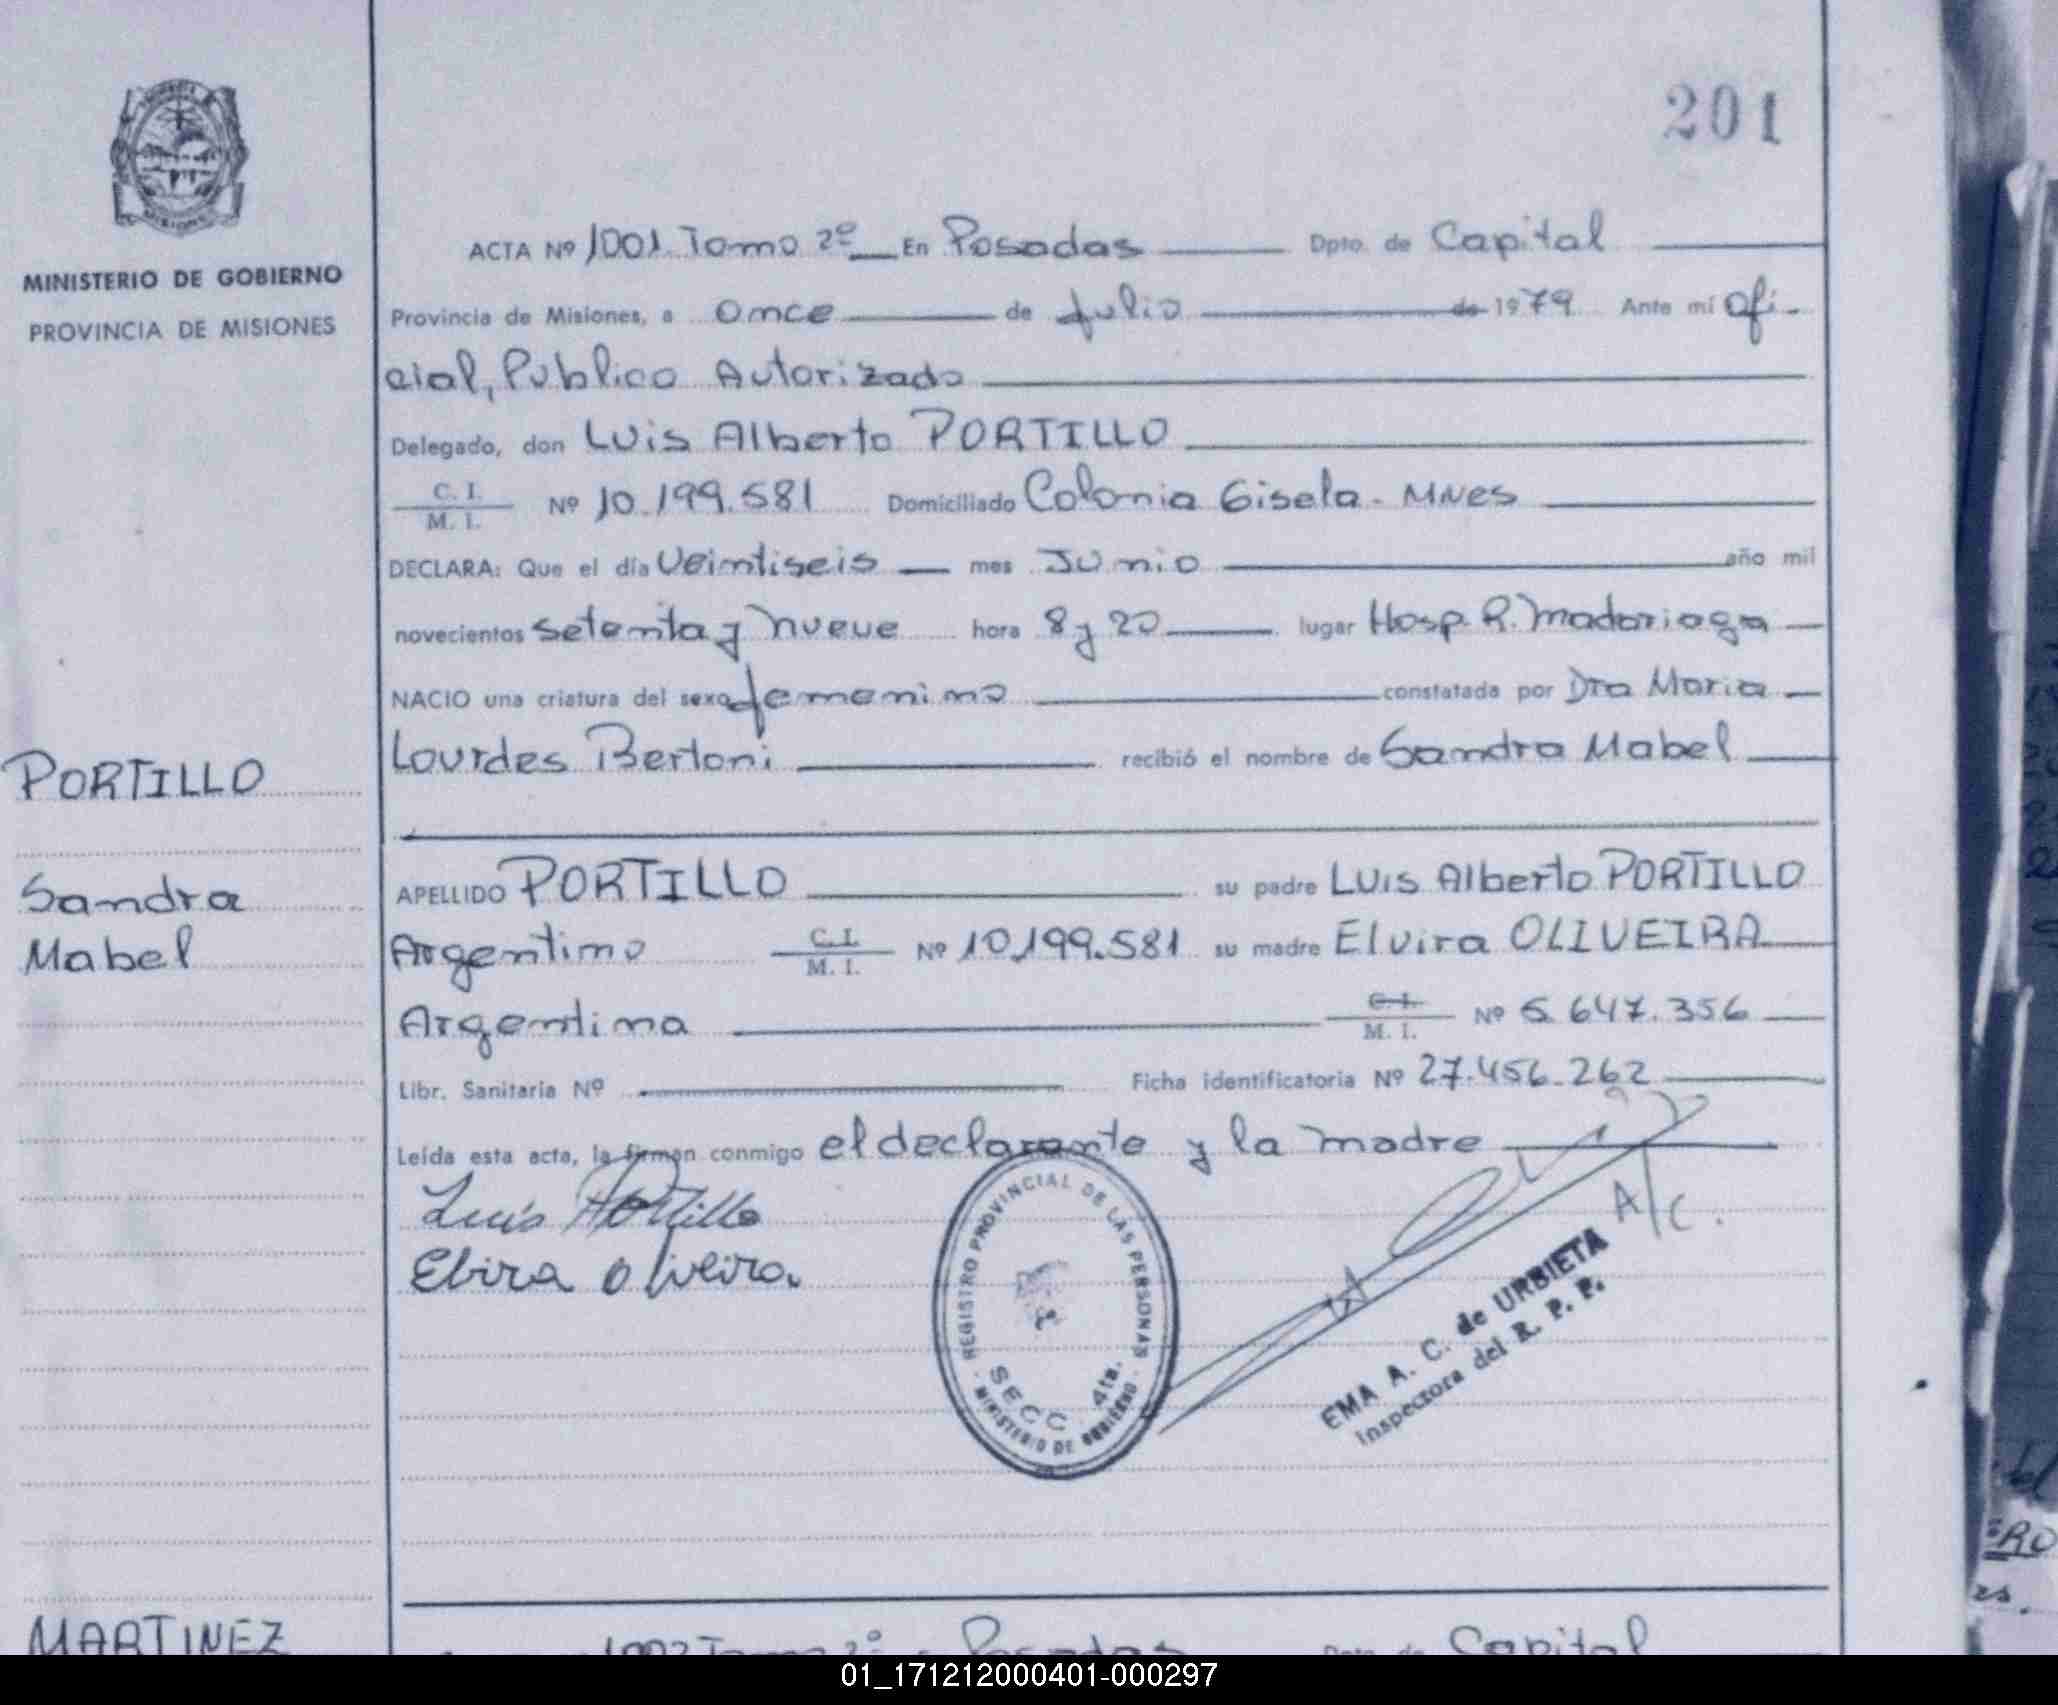 201
MINISTERIO DE GOBIERNO
PROVINCIA DE MISIONES
ACTA Nº 1001 Tomo 2º En Posadas Dpto. de Capital
Provincia de Misiones, a once de Julio de 1979 Ante mí Ofi-
cial, Publico Autorizado
Delegado, don Luis Alberto PORTILLO
C. I.
M. I. Nº 10.199.581 Domiciliado Colonia Gisela - MNes
DECLARA: Que el día Veintiseis mes Junio año mil
novecientos setenta y nueve hora 8 y 20 lugar Hosp. R. Madariaga
NACIO una criatura del sexo femenino constatada por Dra Maria
Lourdes Bertoni recibió el nombre de Sandra Mabel
PORTILLO
Sandra
Mabel
APELLIDO PORTILLO su padre Luis Alberto PORTILLO
Argentino C. I.
M. I. Nº 10.199.581 su madre Elvira OLIVEIRA
Argentina C. I.
M. I. Nº 5.647.356
Libr. Sanitaria Nº Ficha identificatoria Nº 27.456.262
Leída esta acta, la firman conmigo el declarante y la madre
Luis Portillo
Elvira Oliveira
REGISTRO PROVINCIAL DE LAS PERSONAS
SECC. 4ta.
MINISTERIO DE GOBIERNO
A/C.
EMA A. C. de URBIETA
Inspectora del R. P. P.
MARTINEZ
1002 Tomo 2º Posadas Dpto. de Capital
01_171212000401-000297